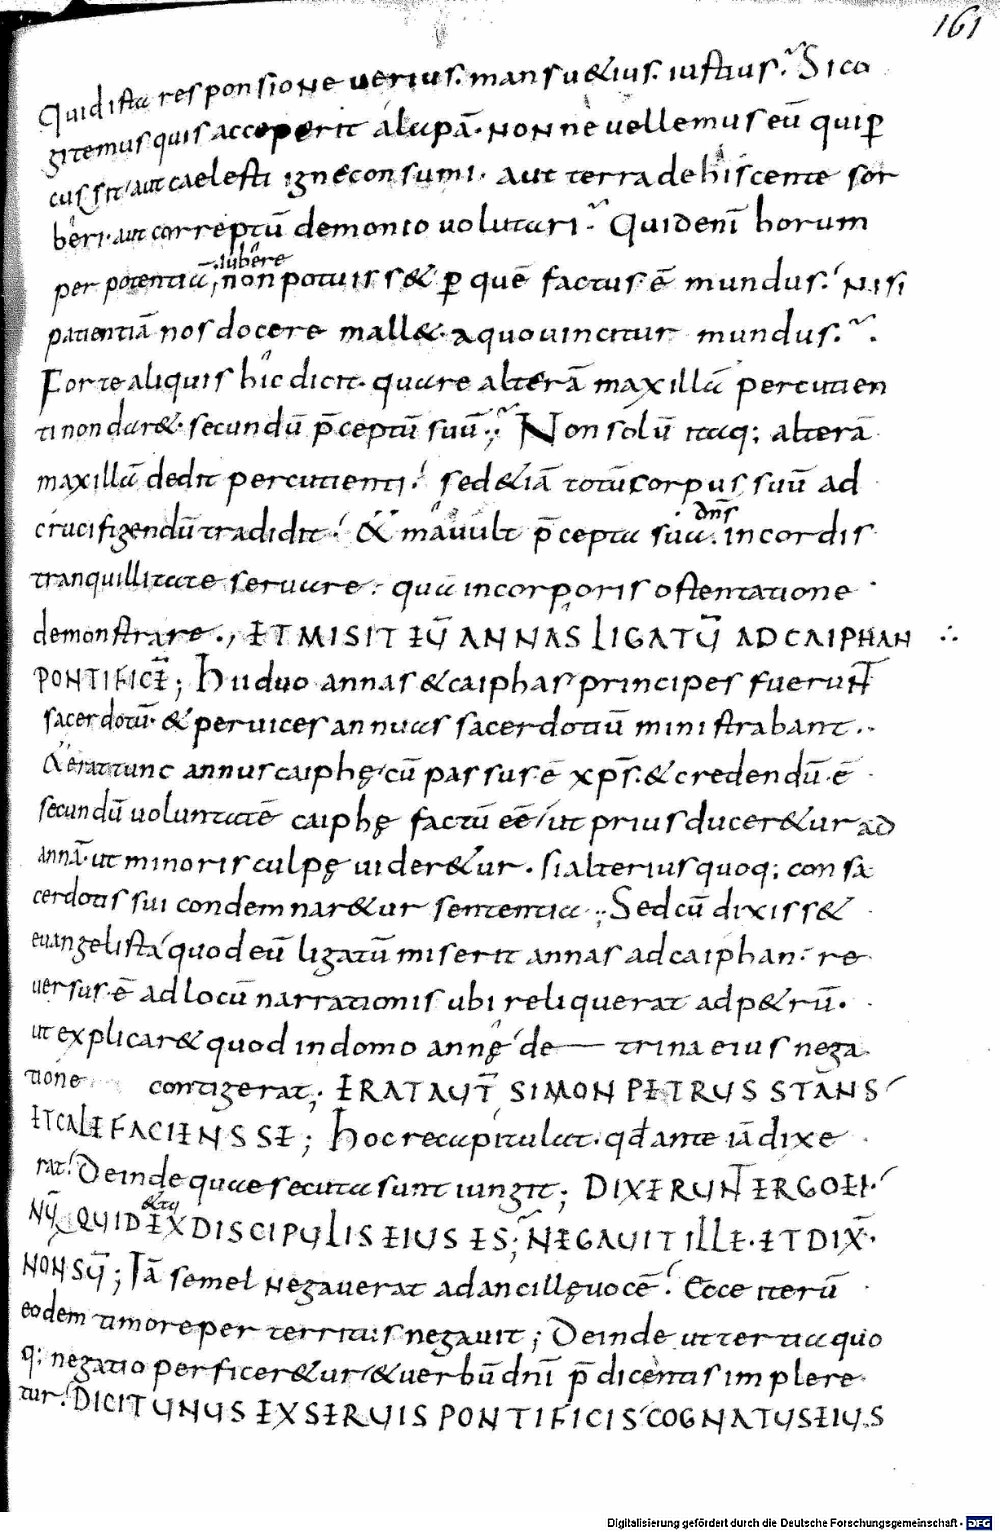 161
Quid ista responsione uerius. mansu&ius. iustius. Si co
gitemus quis acceperit alapā. nonne uellemus eū qui ꝑ
cussit, aut caelesti igne consumi. aut terra dehiscente sor
beri. aut correptū demonio uolutari. Quid enī horum
iubere
per potentiā, non potuiss& ꝑ quē factus ē mundus. Nisi
patientiā nos docere mall&. a quo uincitur mundus.
Forte aliquis hic dicit. quare alterā maxillā percutien
ti non dar& secundū p̄ceptū suū; Non solū itaq; alterā
maxillā dedit percutienti. sed &iā totū corpus suū ad
dn̄s
crucifigendū tradidit. & mauult p̄cepta sua. in cordis
tranquillitate seruare. quā in corporis ostentatione
demonstrare., ET MISIT EŪ ANNAS LIGATŪ AD CAIPHAN ∴
PONTIFICĒ; Hi duo annas & caiphas principes fuerunt
sacerdotū. & per uices annuas sacerdotiū ministrabant..
& erat tunc annus caiphę, cū passus ē xp̄s. & credendū ē
secundū uoluntatē caiphę factū eē, ut prius ducer&ur ad
annā. ut minoris culpę uider&ur. si alterius quoq; consa
cerdotis sui condemnar&ur sententia; Sed cū dixiss&
euangelista quod eū ligatū miserit annas ad caiphan. re
uersus ē ad locū narrationis ubi reliquerat ad p&rū.
ut explicar& quod in domo annę de — trina eius nega
tione contigerat; ERAT AUT̄ SIMON PETRUS STANS
ET CALEFACIENS SE; Hoc recapitulat. qd̄ ante iā dixe
rat. Deinde quae secuta sunt iungit; DIXERUNT ERGO EI.
&tu
NŪ QUID EX DISCIPULIS EIUS ES; NEGAUIT ILLE. ET DIX̄.
NON SŪ; Iā semel negauerat ad ancillę uocē. Ecce iterū
eodem timore perterritus negauit; Deinde ut tertia quo
q; negatio perficer&ur, & uerbū dn̄i p̄dicentis implere
tur. DICIT UNUS EX SERUIS PONTIFICIS COGNATUS EIUS
Digitalisierung gefördert durch die Deutsche Forschungsgemeinschaft - DFG